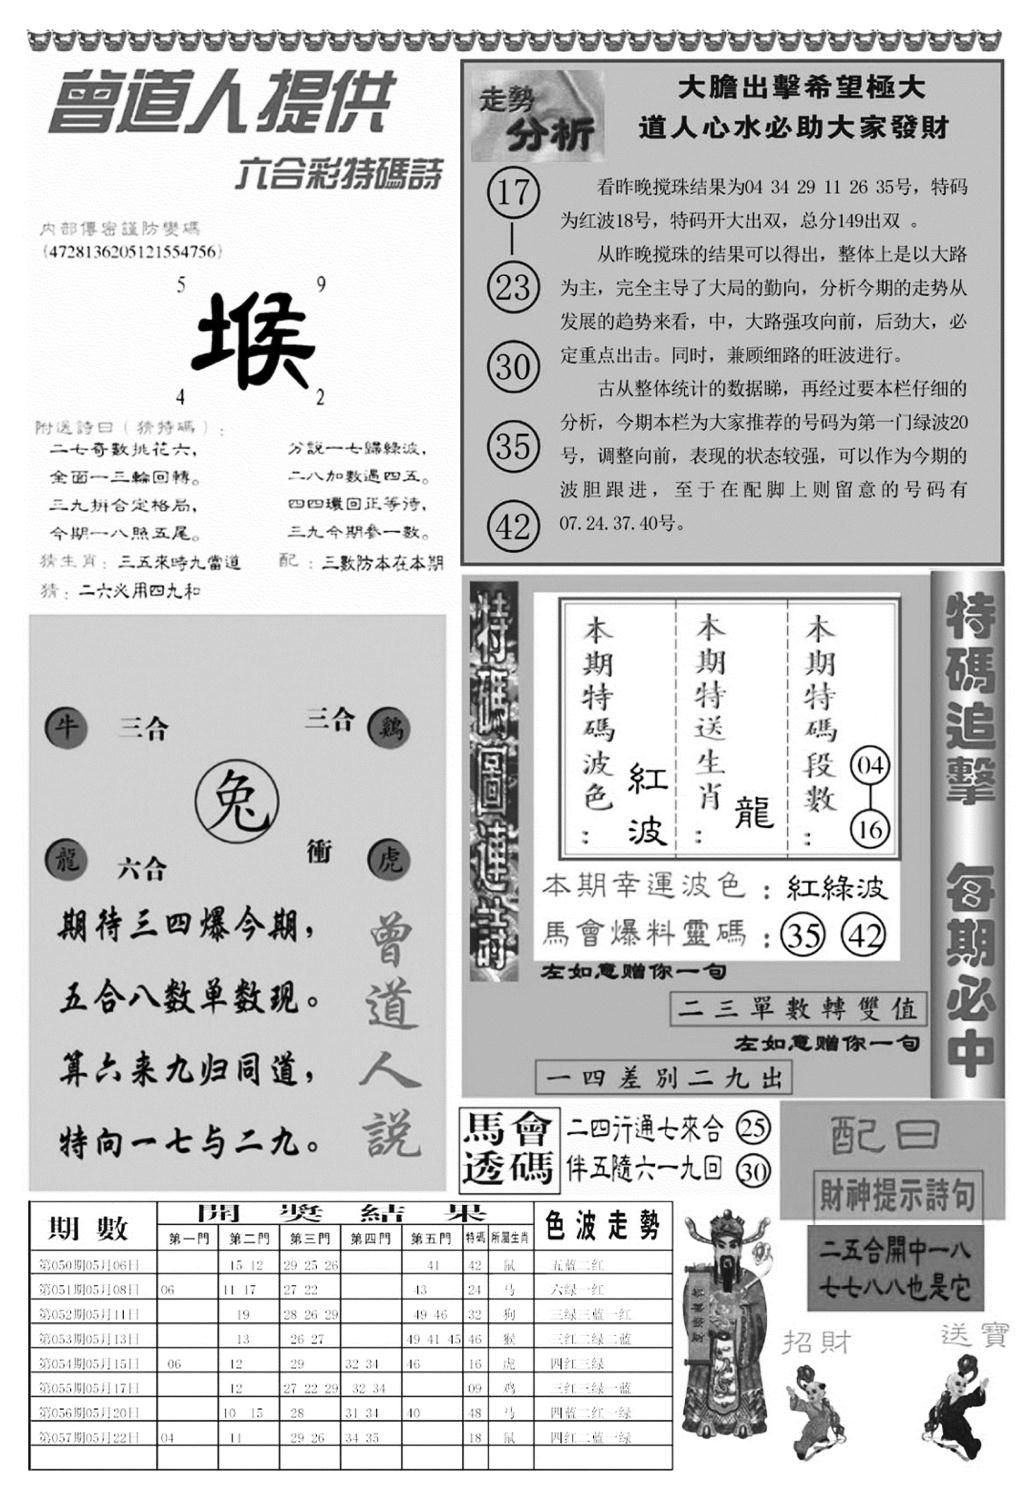 曾道人提供
六合彩特碼詩
内部傳密謹防變碼
(4728136205121554756)
5 9
堠
4 2
附送詩曰（猜特碼）:
二七奇數挑花六， 分説一七歸綠波，
全面一三輪回轉。 二八加數遇四五。
三九拼合定格局， 四四環回正等待，
今期一八照五尾。 三九今期參一數。
猜生肖：三五來時九當道 配：三數防本在本期
猜：二六必用四九和
走勢
分析
大膽出擊希望極大
道人心水必助大家發財
17
23
30
35
42
看昨晚搅珠结果为04 34 29 11 26 35号，特码
为红波18号，特码开大出双，总分149出双 。
从昨晚搅珠的结果可以得出，整体上是以大路
为主，完全主导了大局的勤向，分析今期的走势从
发展的趋势来看，中，大路强攻向前，后劲大，必
定重点出击。同时，兼顾细路的旺波进行。
古从整体统计的数据睇，再经过要本栏仔细的
分析，今期本栏为大家推荐的号码为第一门绿波20
号，调整向前，表现的状态较强，可以作为今期的
波胆跟进，至于在配脚上则留意的号码有
07.24.37.40号。
牛 三合
三合 鷄
兔
龍 六合
衝 虎
期待三四爆今期，
五合八数单数现。
算六来九归同道，
特向一七与二九。
曾道人説
特碼圖連詩
本期特碼波色：
紅波
本期特送生肖：
龍
本期特碼段數：
04
16
本期幸運波色：紅綠波
馬會爆料靈碼：35 42
左如意赠你一句
二三單數轉雙值
左如意赠你一句
一四差別二九出
特碼追擊 每期必中
馬會
透碼
二四行通七來合 25
伴五隨六一九回 30
配曰
財神提示詩句
二五合開中一八
七七八八也是它
招財
送寶
期數 開獎結果 色波走勢
第一門 第二門 第三門 第四門 第五門 特碼 所屬生肖
第050期05月06日 15 12 29 25 26 41 42 鼠 五蓝二红
第051期05月08日 06 11 17 27 22 43 24 马 六绿一红
第052期05月11日 19 28 26 29 49 46 32 狗 三绿三蓝一红
第053期05月13日 13 26 27 49 41 45 46 猴 三红二绿二蓝
第054期05月15日 06 12 29 32 34 46 16 虎 四红三绿
第055期05月17日 12 27 22 29 32 34 09 鸡 三红三绿一蓝
第056期05月20日 10 15 28 31 34 40 48 马 四蓝二红一绿
第057期05月22日 04 11 29 26 34 35 18 鼠 四红二蓝一绿